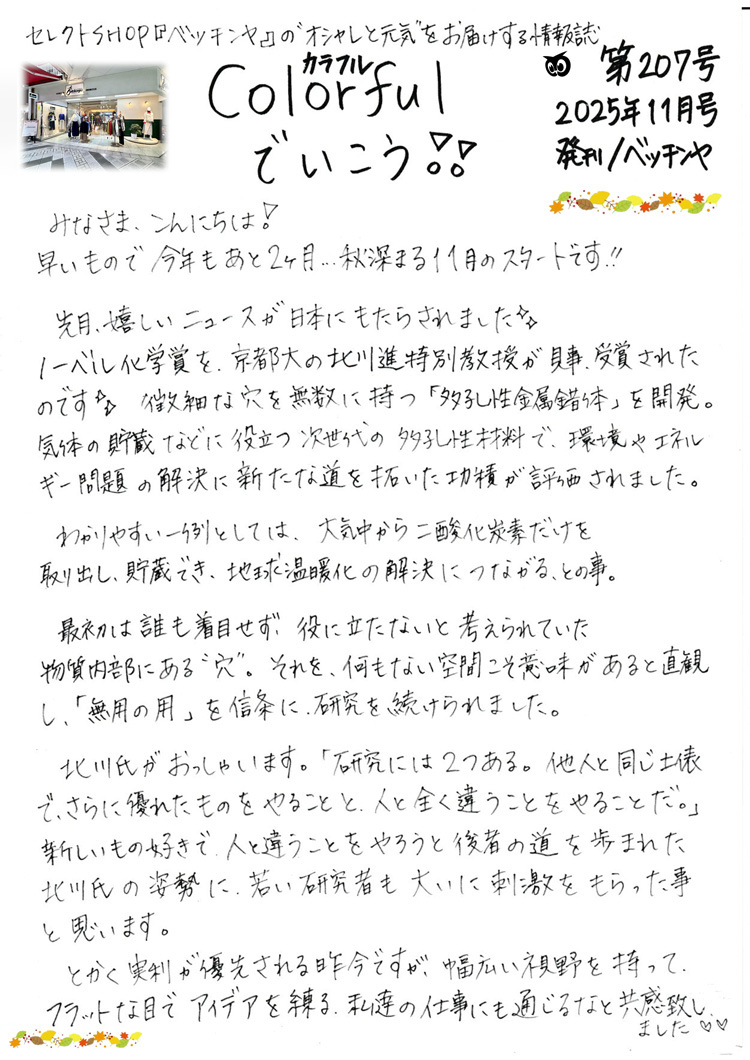 セレクトSHOP『ベッチンヤ』の“オシャレと元気”をお届けする情報誌
カラフル
Colorful
でいこう!!
第207号
2025年11月号
発刊/ベッチンヤ
みなさま、こんにちは!
早いもので今年もあと2ヶ月…秋深まる11月のスタートです!!
先月、嬉しいニュースが日本にもたらされました☆☆
ノーベル化学賞を、京都大の北川進特別教授が見事、受賞された
のです☆☆ 微細な穴を無数に持つ「多孔性金属錯体」を開発。
気体の貯蔵などに役立つ次世代の多孔性材料で、環境やエネル
ギー問題の解決に新たな道を拓いた功績が評価されました。
わかりやすい一例としては、大気中から二酸化炭素だけを
取り出し、貯蔵でき、地球温暖化の解決につながる、との事。
最初は誰も着目せず、役に立たないと考えられていた
物質内部にある“穴”。それを、何もない空間こそ意味があると直観
し、「無用の用」を信条に、研究を続けられました。
北川氏がおっしゃいます。「研究には2つある。他人と同じ土俵
で、さらに優れたものをやることと、人と全く違うことをやることだ。」
新しいもの好きで、人と違うことをやろうと後者の道を歩まれた
北川氏の姿勢に、若い研究者も大いに刺激をもらった事
と思います。
とかく実利が優先される昨今ですが、幅広い視野を持って、
フラットな目でアイデアを練る、私達の仕事にも通じるなと共感致し
ました♡♡